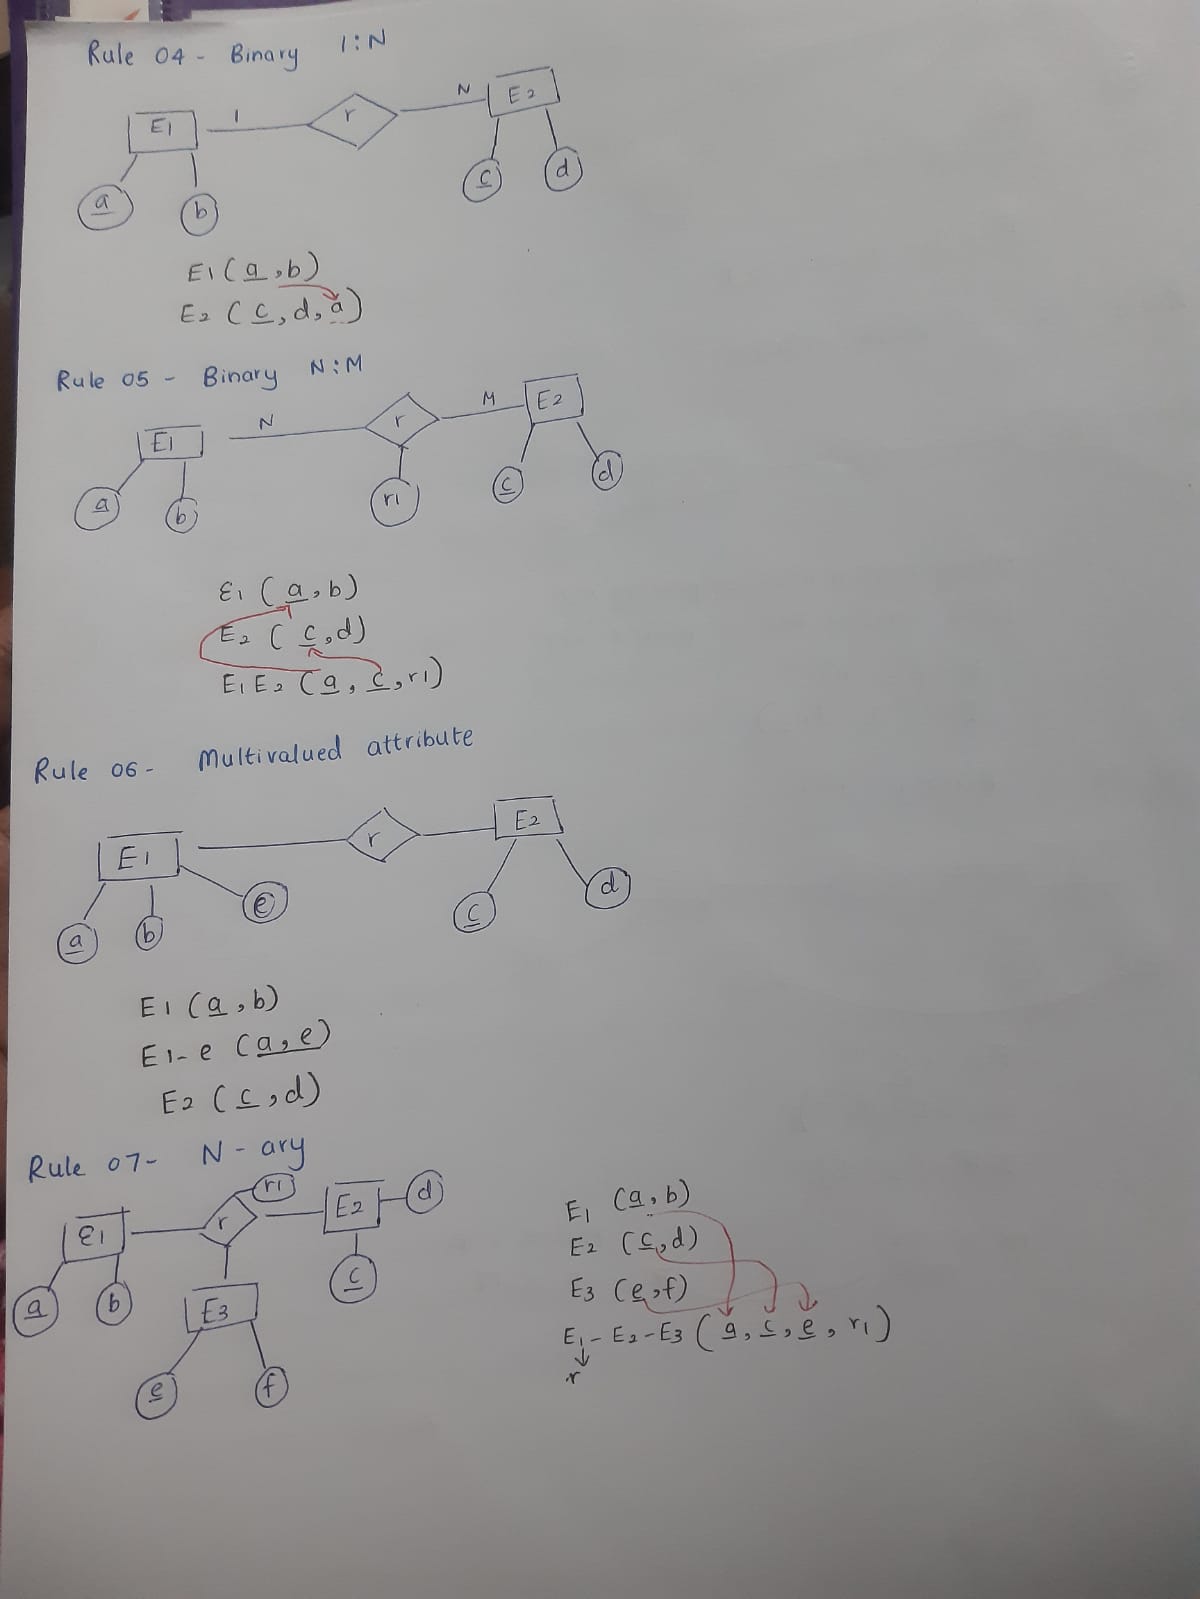 Rule 04 - Binary 1:N
E1 1 r N E2
a b c d
E1 (a,b)
E2 (c,d,a)
Rule 05 - Binary N:M
E1 N r M E2
a b r1 c d
E1 (a,b)
E2 (c,d)
E1E2 (a,c,r1)
Rule 06 - Multivalued attribute
E1 r E2
a b e c d
E1 (a,b)
E1-e (a,e)
E2 (c,d)
Rule 07- N-ary
E1 r r1 E2 d
a b E3 c
e f
E1 (a,b)
E2 (c,d)
E3 (e,f)
E1-E2-E3 (a,c,e,r1)
r